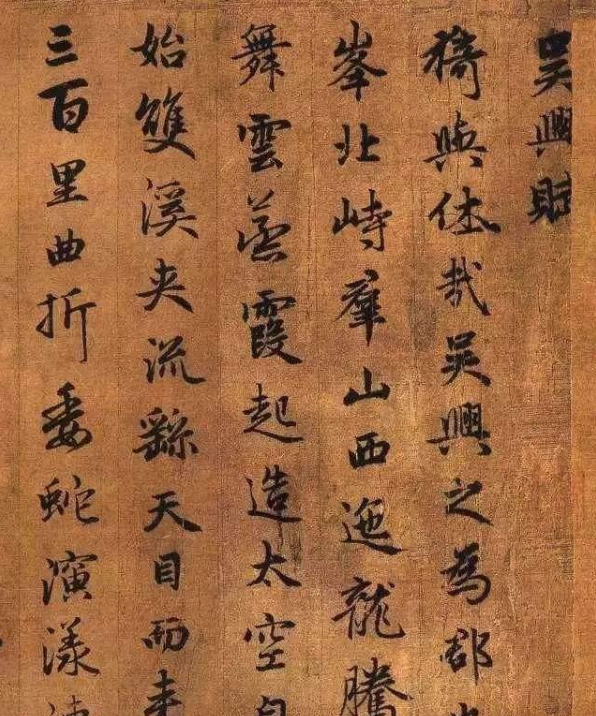 吳興賦
猗與休哉吳興之為郡
峯北峙羣山西迤龍騰
舞雲蒸霞起造太空自
始雙溪夾流繇天目而来
三百里曲折委蛇演漾